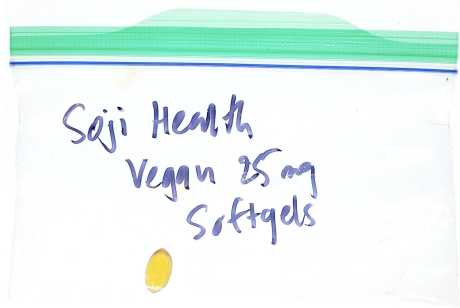 Soji Health
Vegan 25 mg
Softgels